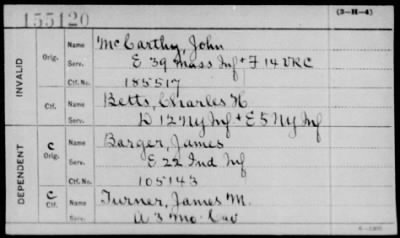 155120
(3-H-4)
INVALID
Orig. Name McCarthy, John
Serv. E 39 Mass Inf + F 14 VRC
Ctf. No. 185517
Ctf. Name Betts, Charles H
Serv. D 12 Ny Inf + E 5 Ny Inf
DEPENDENT
C Orig. Name Barger, James
Serv. E 22 Ind Inf
Ctf. No. 105143
C Ctf. Name Turner, James M.
Serv. A 3 Mo. Cav